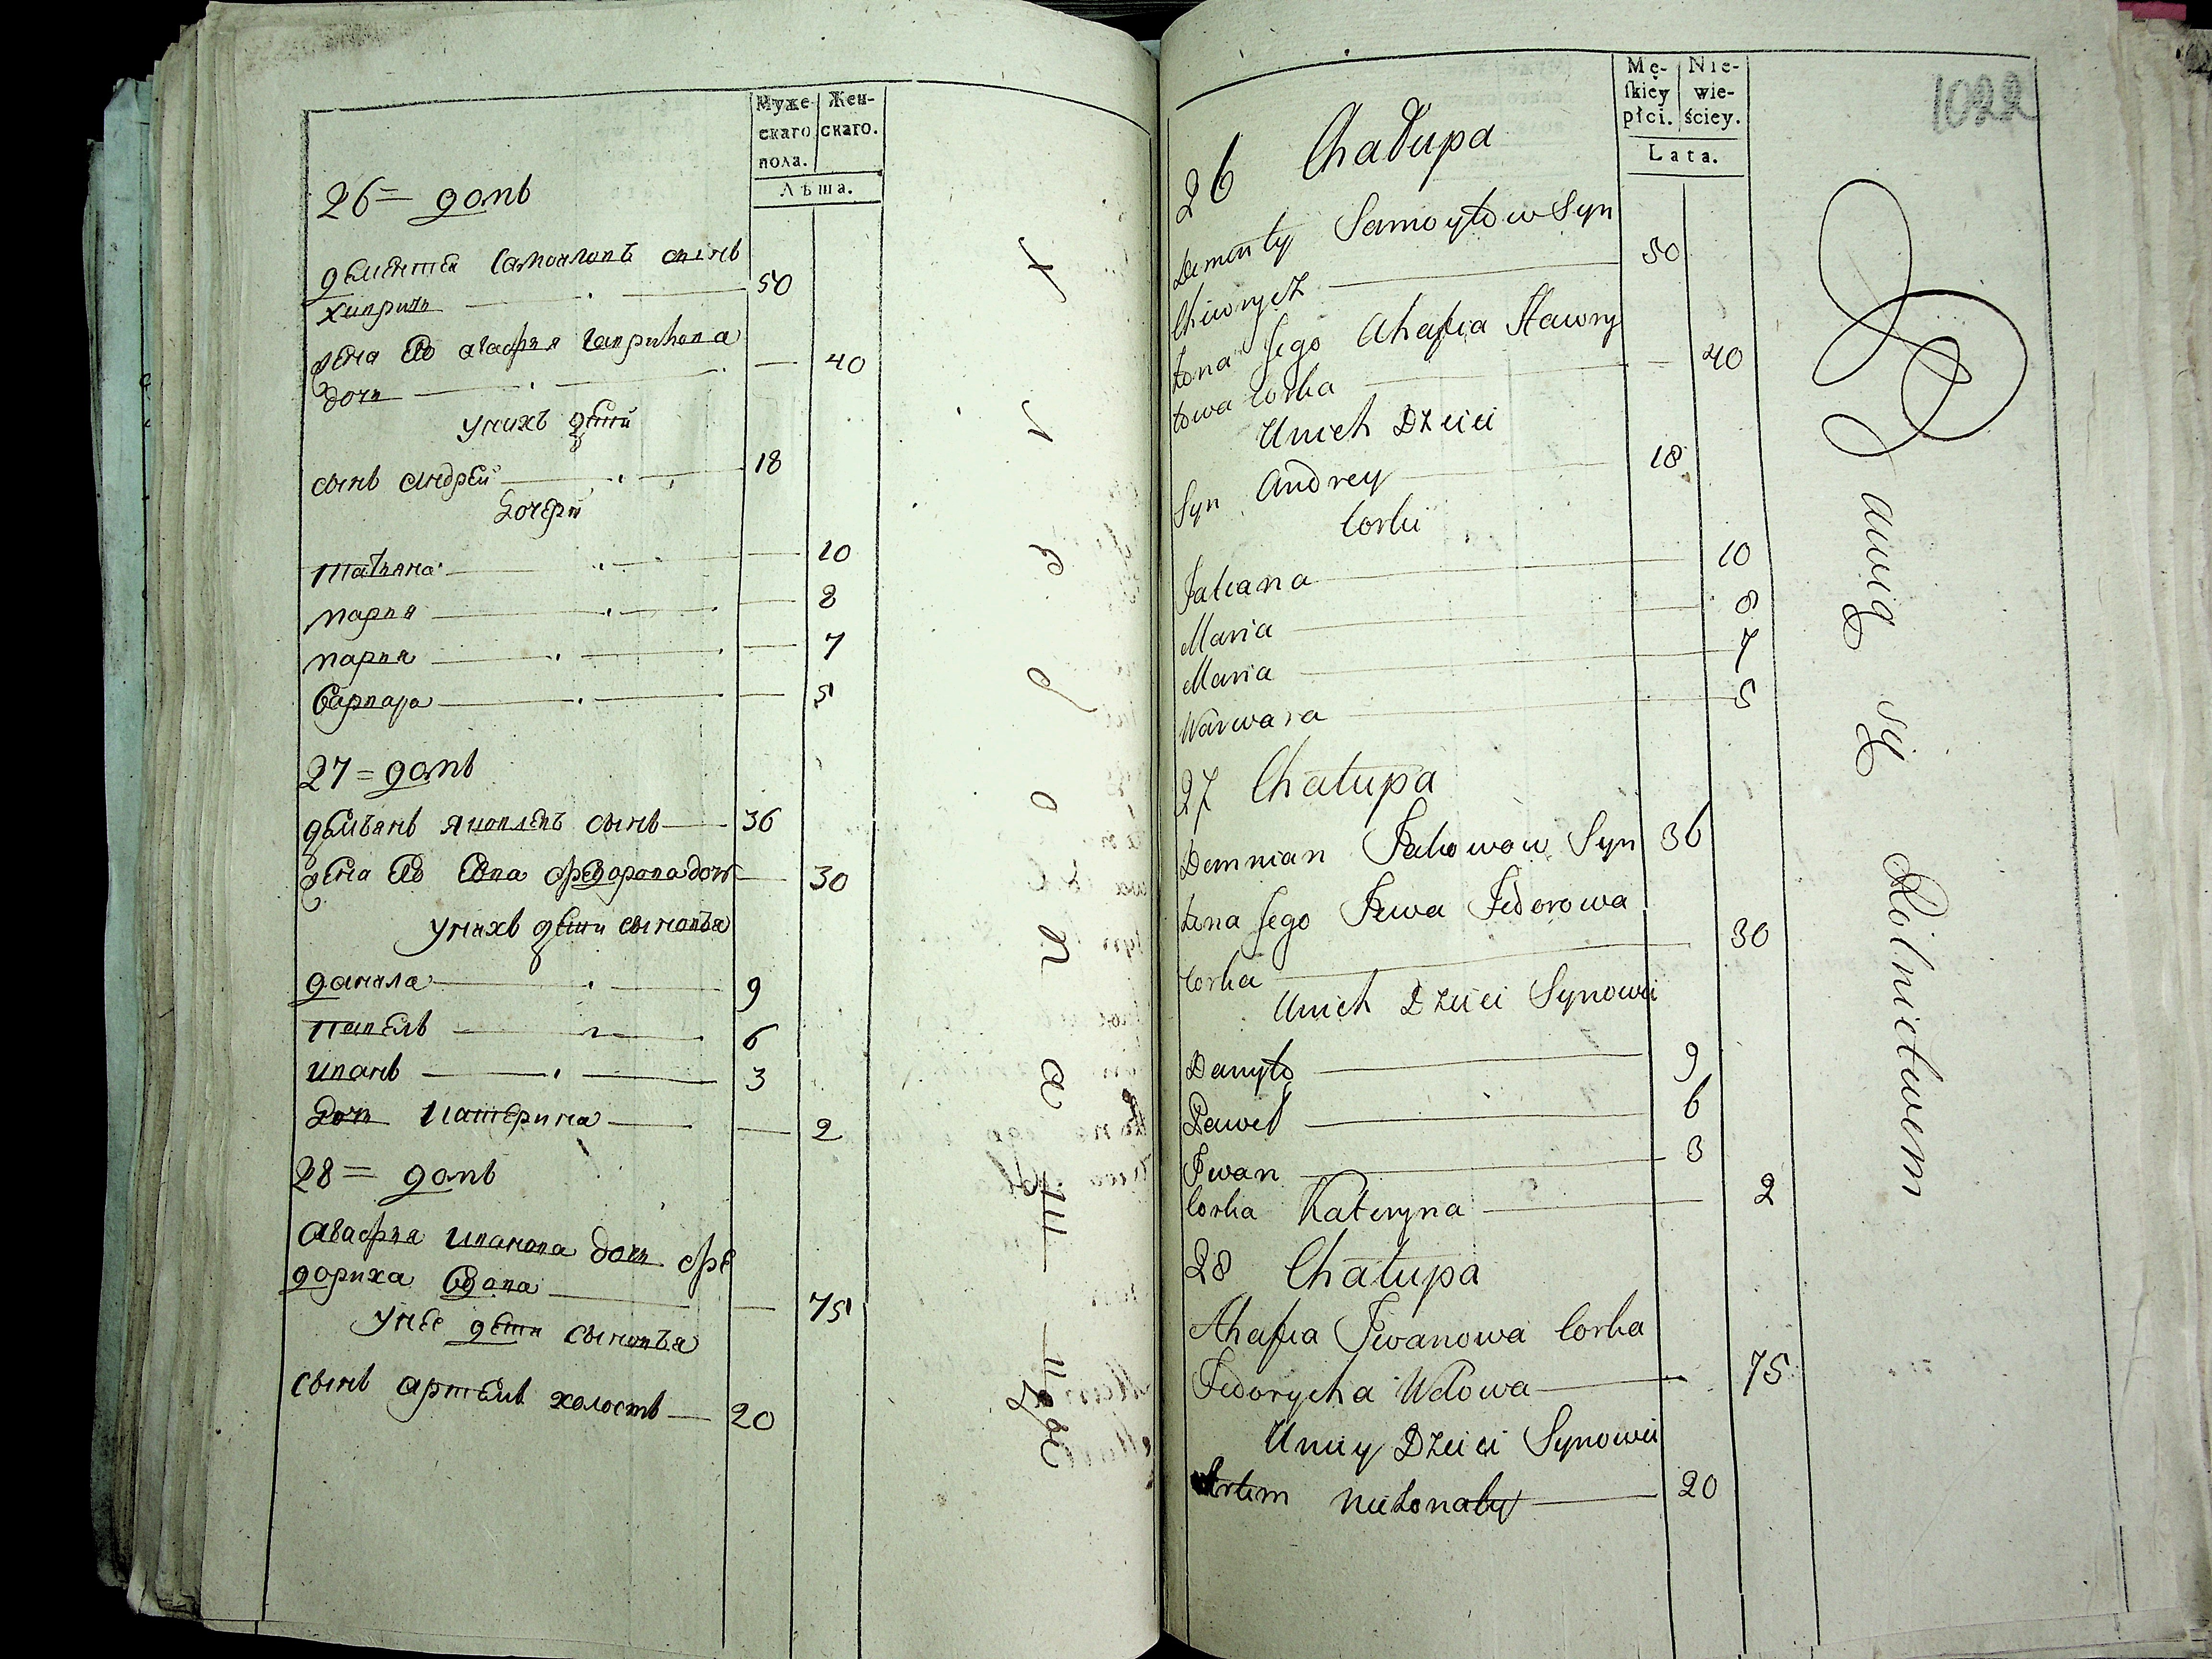 Муже-
скаго
пола.
Жен-
скаго.
Лѣта.
26 = домъ
дементей самойловъ сынъ
хипричъ 50
жена его агафия гаврилова
дочь — 40
у нихъ дети
сынъ андрей 18
дочери
татьяна — 10
мария — 8
мария — 7
варвара — 5
27 = домъ
демьянъ яковлевъ сынъ 36
жена его евва федорова дочь — 30
у нихъ дети сыновья
данила 9
павелъ 6
иванъ 3
дочь катерина — 2
28 = домъ
агафия иванова дочь фе
дориха вдова — 75
у нее дети сыновья
сынъ артемъ холостъ 20
Mę-
skiey
płci.
Nie-
wie-
ściey.
Lata.
1022
26 Chałupa
Dementy Samoyłow Syn
Chiwrycz 50
żona Jego Ahafia Hawry
łowa Corka — 40
U nich Dzieci
Syn Andrey 18
Corki
Tatiana 10
Maria 8
Maria 7
Warwara 5
27 Chałupa
Demnian Jakowow Syn 36
żona Jego Jewa Fedorowa
Corka 30
U nich Dzieci Synowie
Danyło 9
Paweł 6
Iwan 3
Corka Kateryna 2
28 Chałupa
Ahafia Iwanowa Corka
Fedorycha Wdowa 75
U niey Dzieci Synowie
Artem nieżonaty 20
awią się Rolnictwem